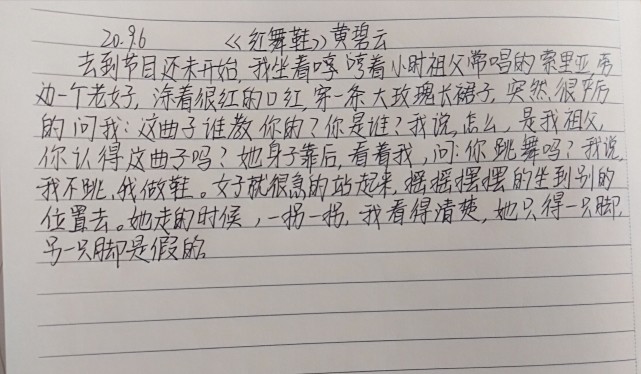 20.9.6 《红舞鞋》黄碧云
去到节目还未开始,我坐着哼哼着小时祖父常唱的索里亚,旁
边一个老女子,涂着很红的口红,穿一条大玫瑰长裙子,突然很
的问我:这曲子谁教你的?你是谁?我说,怎么,是我祖父,
你认得这曲子吗?她身子靠后,看着我,问:你跳舞吗?我说,
我不跳,我做鞋。女子就很急的站起来,摇摇摆摆的坐到别的
位置去。她走的时候,一拐一拐,我看得清楚,她只得一只脚,
另一只脚是假的。